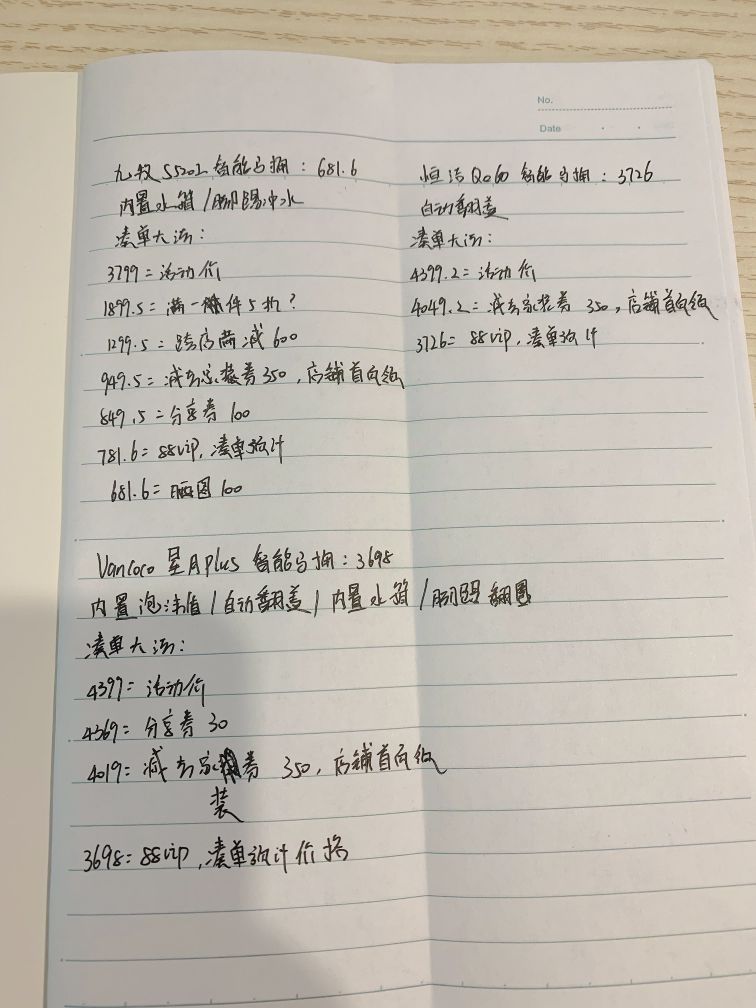 No.
Date
九牧S520I智能马桶：681.6
内置水箱/脚踢冲水
凑单大法：
3799=活动价
1899.5=满一件5折？
1299.5=跨店满减600
949.5=减去家装券350，店铺首页领
849.5=分享券100
781.6=88VIP，凑单预计
681.6=晒图100
恒洁Q060智能马桶：3726
自动翻盖
凑单大法：
4399.2=活动价
4049.2=减去家装券350，店铺首页领
3726=88vip，凑单预计
Vancoco星月Plus智能马桶：3698
内置泡沫盾/自动翻盖/内置水箱/脚踢翻圈
凑单大法：
4399=活动价
4369=分享券30
4019=减去家装券350，店铺首页领
3698=88VIP，凑单预计价格